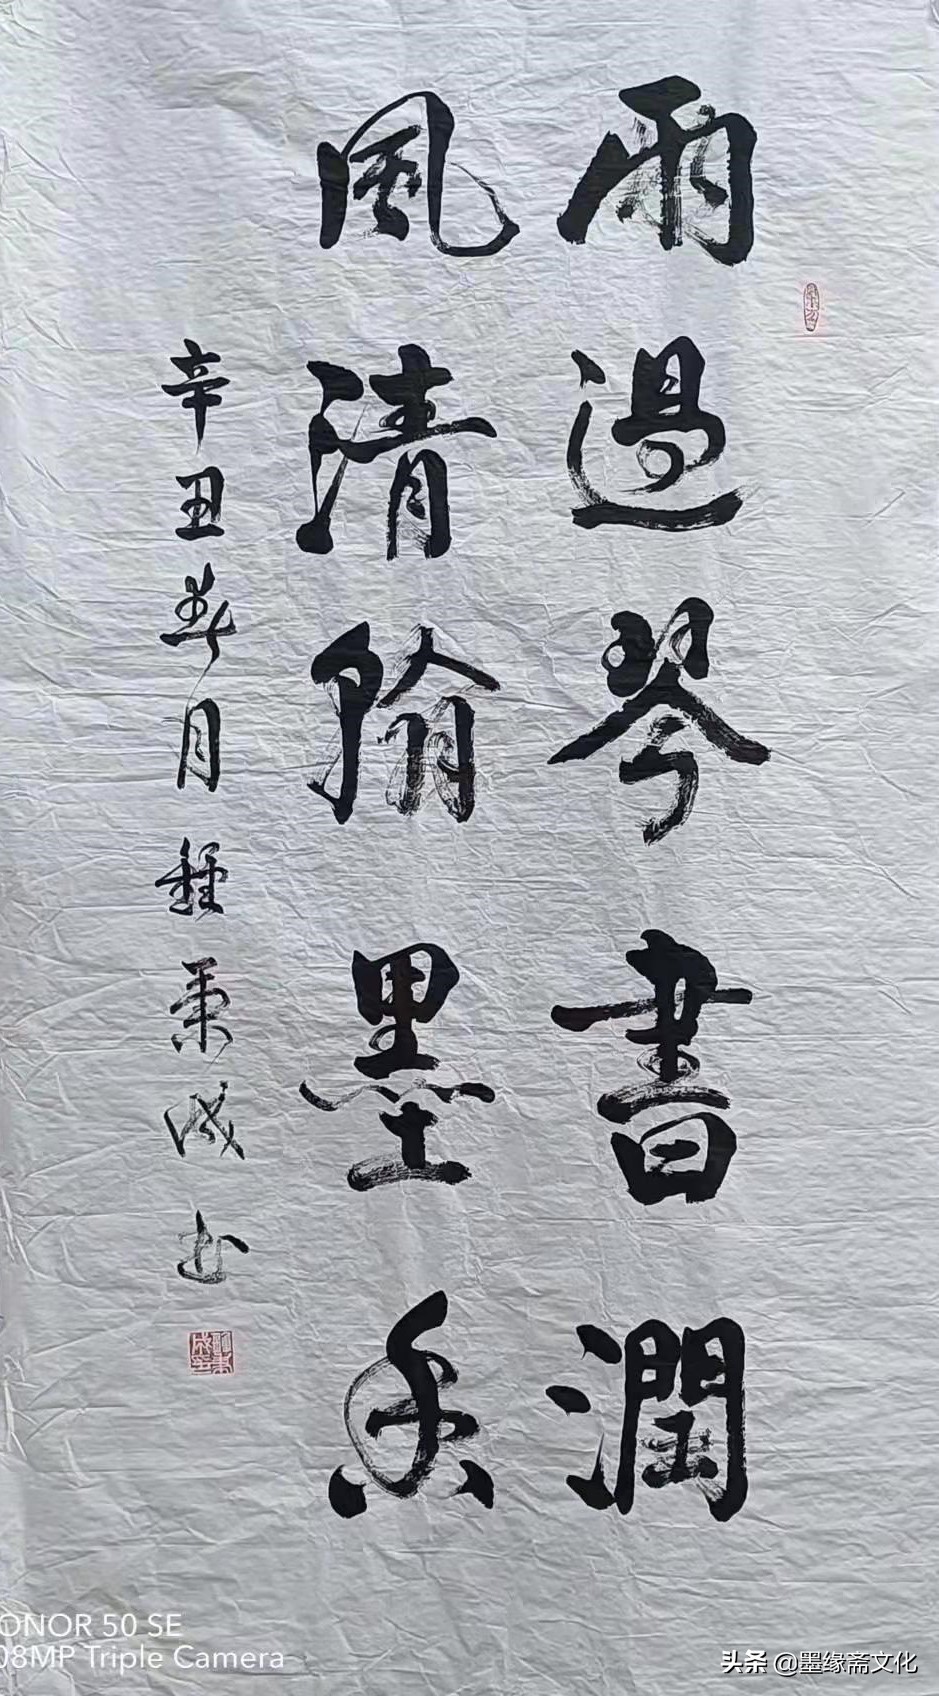 雨過琴書潤
風清翰墨香
辛丑春月程秉成书
HONOR 50 SE
108MP Triple Camera
头条 @墨缘斋文化